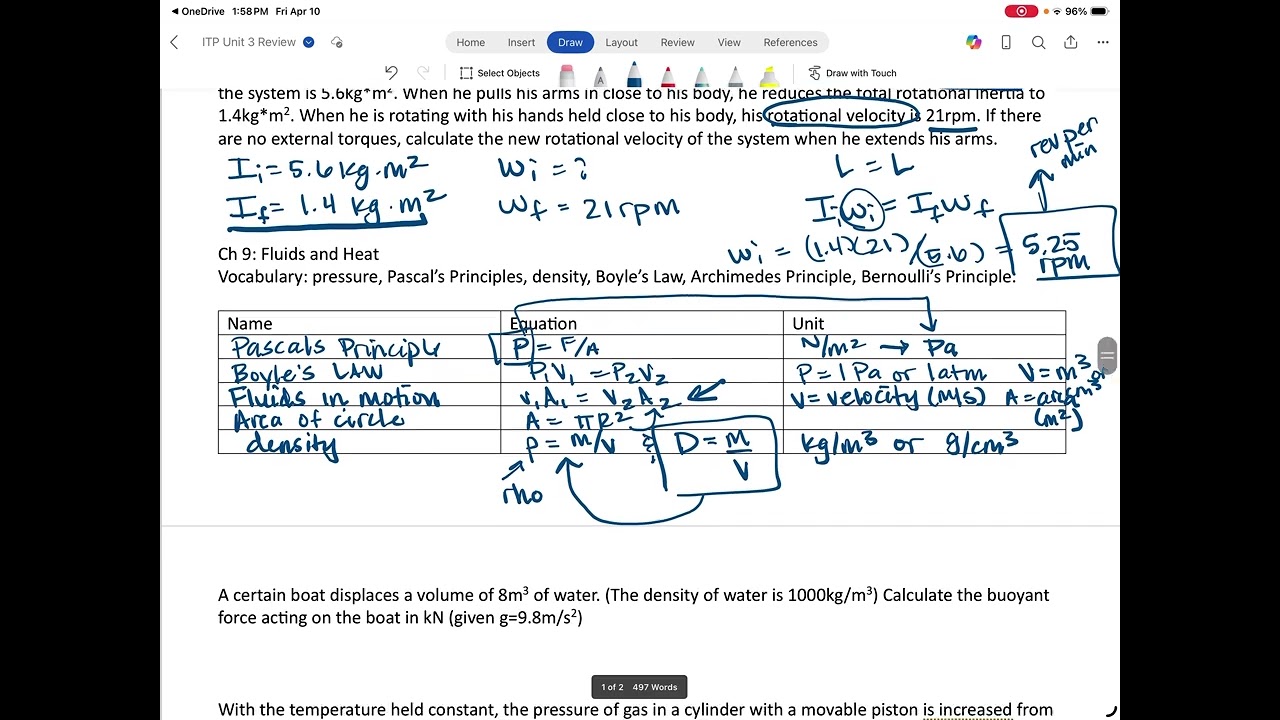 OneDrive 1:58 PM Fri Apr 10 96%
ITP Unit 3 Review
Home Insert Draw Layout Review View References
Select Objects Draw with Touch
the system is 5.6kg*m². When he pulls his arms in close to his body, he reduces the total rotational inertia to
1.4kg*m². When he is rotating with his hands held close to his body, his rotational velocity is 21rpm. If there
are no external torques, calculate the new rotational velocity of the system when he extends his arms.
rev per min
Ii = 5.6 kg·m² wi = ? L = L
If = 1.4 kg·m² wf = 21 rpm Iiwi = Ifwf
wi = (1.4)(21)/(5.6) = 5.25 rpm
Ch 9: Fluids and Heat
Vocabulary: pressure, Pascal's Principles, density, Boyle's Law, Archimedes Principle, Bernoulli's Principle.
Name Equation Unit
Pascals Principle P = F/A N/m² → Pa
Boyle's LAW P₁V₁ = P₂V₂ P = 1 Pa or 1atm V = m³ or
Fluids in motion v₁A₁ = v₂A₂ V = velocity (m/s) A = area (m²)
Area of circle A = πR²
density ρ = m/v D = M/V kg/m³ or g/cm³
rho
A certain boat displaces a volume of 8m³ of water. (The density of water is 1000kg/m³) Calculate the buoyant
force acting on the boat in kN (given g=9.8m/s²)
1 of 2 497 Words
With the temperature held constant, the pressure of gas in a cylinder with a movable piston is increased from